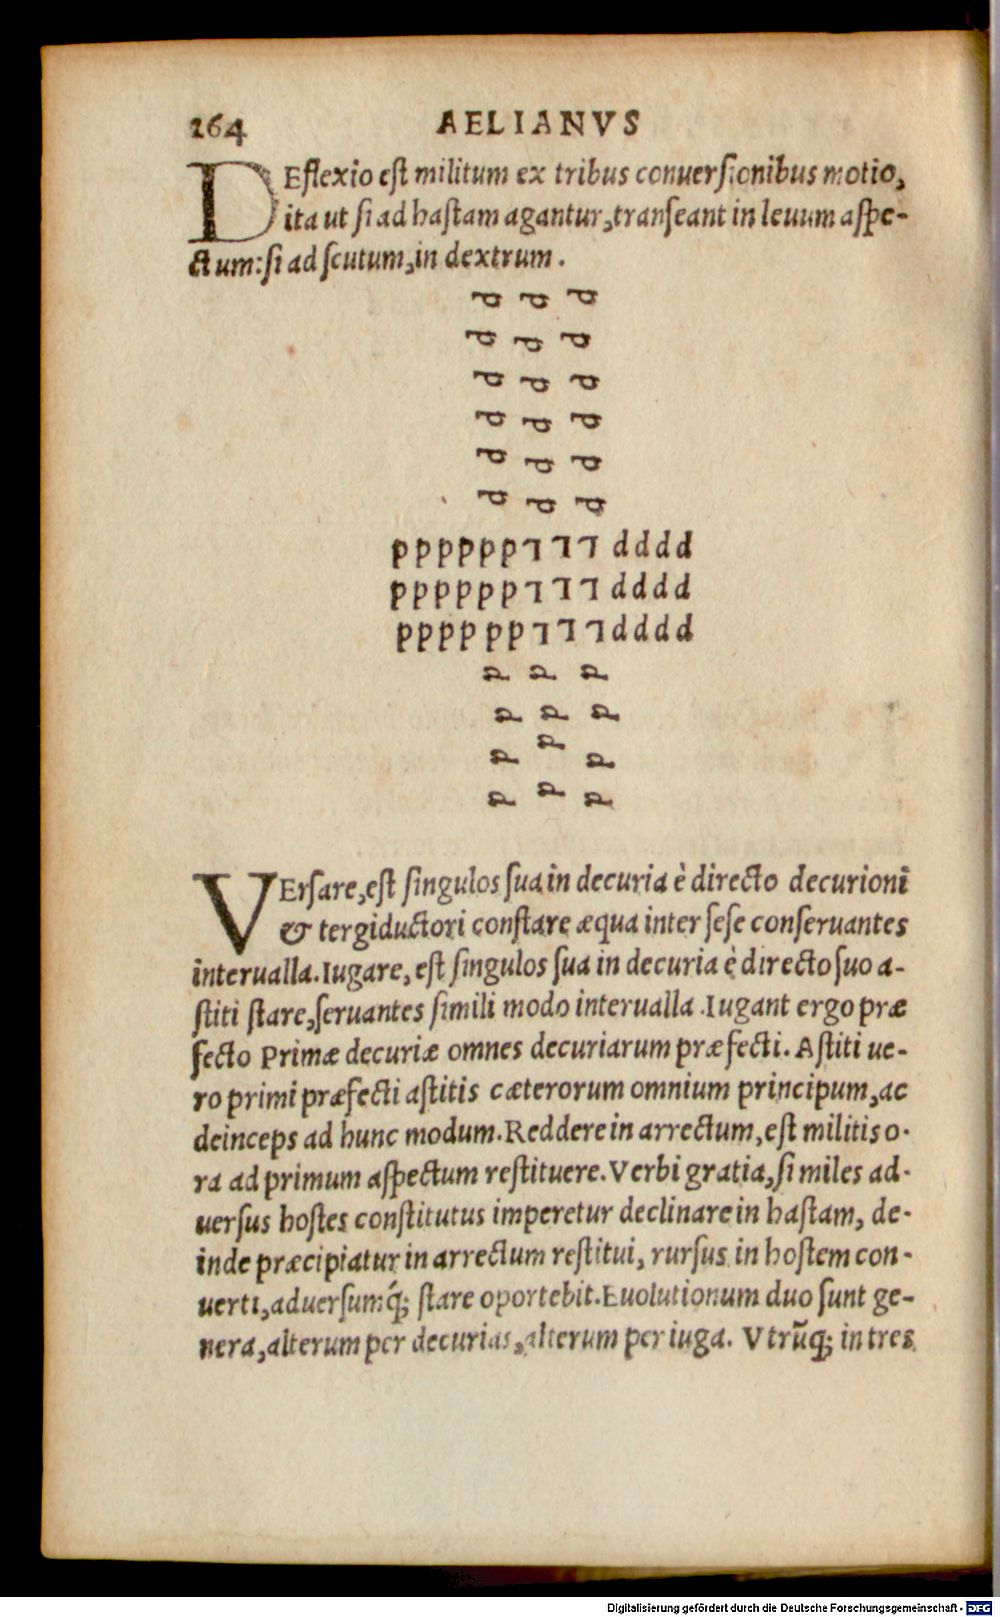 264 AELIANVS
DEflexio eſt militum ex tribus conuerſionibus motio,
ita ut ſi ad haſtam agantur, tranſeant in leuum aſpe-
ctum: ſi ad ſcutum, in dextrum.
p p p
p p p
p p p
p p p
p p p
p p p
pppppp777dddd
pppppp777dddd
pppppp777dddd
p p p
p p p
p p p
p p p
VErſare, eſt ſingulos ſua in decuria è directo decurioni
& tergiductori conſtare æqua inter ſeſe conſeruantes
interualla. Iugare, eſt ſingulos ſua in decuria è directo ſuo a-
ſtiti ſtare, ſeruantes ſimili modo interualla. Iugant ergo præ
fecto Primæ decuriæ omnes decuriarum præfecti. Aſtiti ue-
ro primi præfecti aſtitis cæterorum omnium principum, ac
deinceps ad hunc modum. Reddere in arrectum, eſt militis o-
ra ad primum aſpectum reſtituere. Verbi gratia, ſi miles ad-
uerſus hoſtes conſtitutus imperetur declinare in haſtam, de-
inde præcipiatur in arrectum reſtitui, rurſus in hoſtem con-
uerti, aduerſumq́; ſtare oportebit. Euolutionum duo ſunt ge-
nera, alterum per decurias, alterum per iuga. Vtrūq; in tres
Digitalisierung gefördert durch die Deutsche Forschungsgemeinschaft - DFG